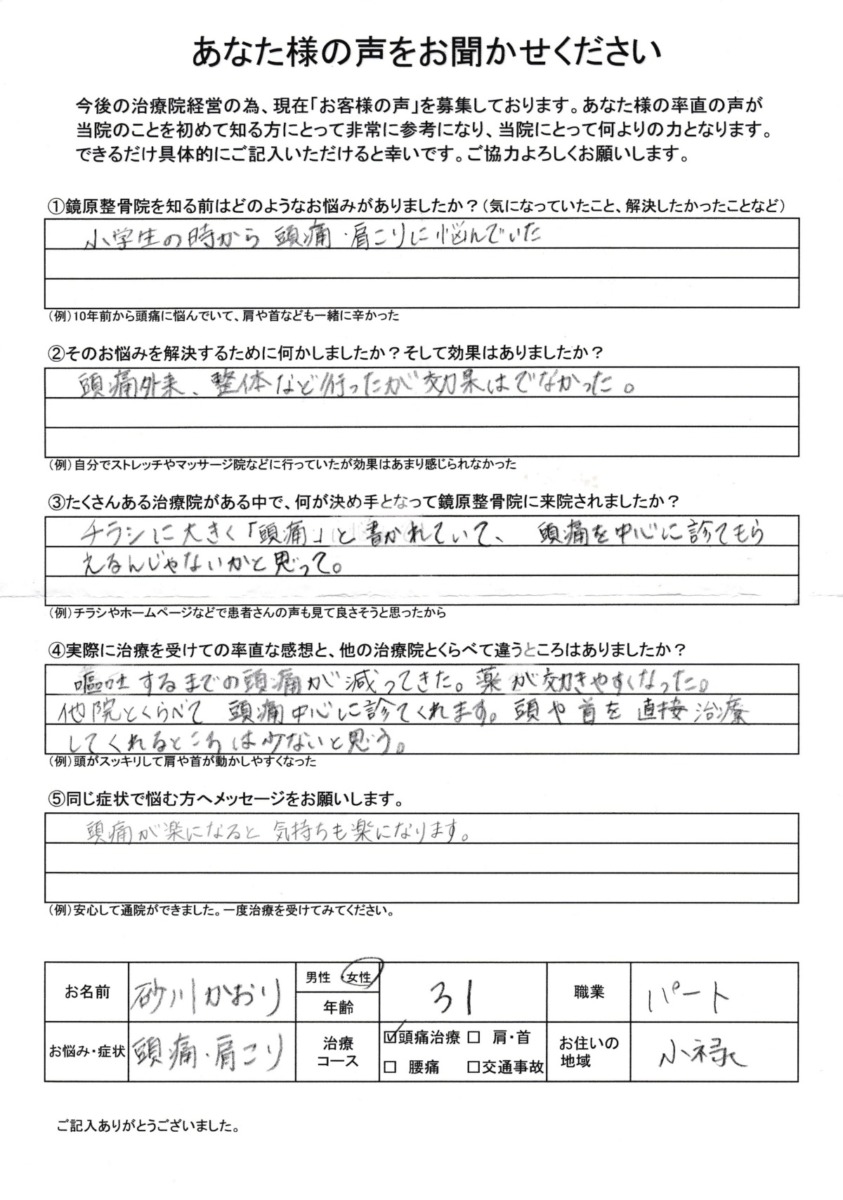 あなた様の声をお聞かせください
今後の治療院経営の為、現在「お客様の声」を募集しております。あなた様の率直の声が
当院のことを初めて知る方にとって非常に参考になり、当院にとって何よりの力となります。
できるだけ具体的にご記入いただけると幸いです。ご協力よろしくお願いします。
①鏡原整骨院を知る前はどのようなお悩みがありましたか？（気になっていたこと、解決したかったことなど）
小学生の時から 頭痛・肩こりに悩んでいた
（例）10年前から頭痛に悩んでいて、肩や首なども一緒に辛かった
②そのお悩みを解決するために何かしましたか？そして効果はありましたか？
頭痛外来、整体など行ったが効果はでなかった。
（例）自分でストレッチやマッサージ院などに行っていたが効果はあまり感じられなかった
③たくさんある治療院がある中で、何が決め手となって鏡原整骨院に来院されましたか？
チラシに大きく「頭痛」と書かれていて、 頭痛を中心に診てもら
えるんじゃないかと思って。
（例）チラシやホームページなどで患者さんの声も見て良さそうと思ったから
④実際に治療を受けての率直な感想と、他の治療院とくらべて違うところはありましたか？
嘔吐するまでの頭痛が減ってきた。薬が効きやすくなった。
他院とくらべて 頭痛中心に診てくれます。頭や首を直接治療
してくれるところは少ないと思う。
（例）頭がスッキリして肩や首が動かしやすくなった
⑤同じ症状で悩む方へメッセージをお願いします。
頭痛が楽になると 気持ちも楽になります。
（例）安心して通院ができました。一度治療を受けてみてください。
お名前 砂川かおり 男性・女性 年齢 31 職業 パート
お悩み・症状 頭痛・肩こり 治療コース ☑頭痛治療 □ 肩・首 □ 腰痛 □交通事故 お住いの地域 小禄
ご記入ありがとうございました。